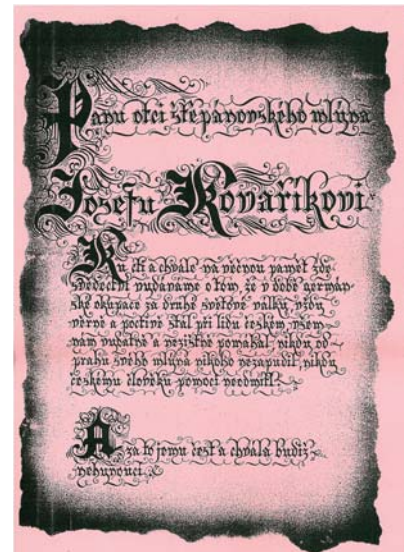 Panu otci štěpánovského mlýna
Josefu Kovaříkovi
Ku cti a chvále na věčnou paměť zde
svědectví vydáváme o tom, že v době germán-
ské okupace za druhé světové války, vždy
věrně a poctivě stál při lidu českém, všem
nám vydatně a nezištně pomáhal, nikdy od
prahu svého mlýna nikoho nezapudil, nikdy
českému člověku pomoci neodmítl.
A za to jemu čest a chvála budiž
nehynoucí.